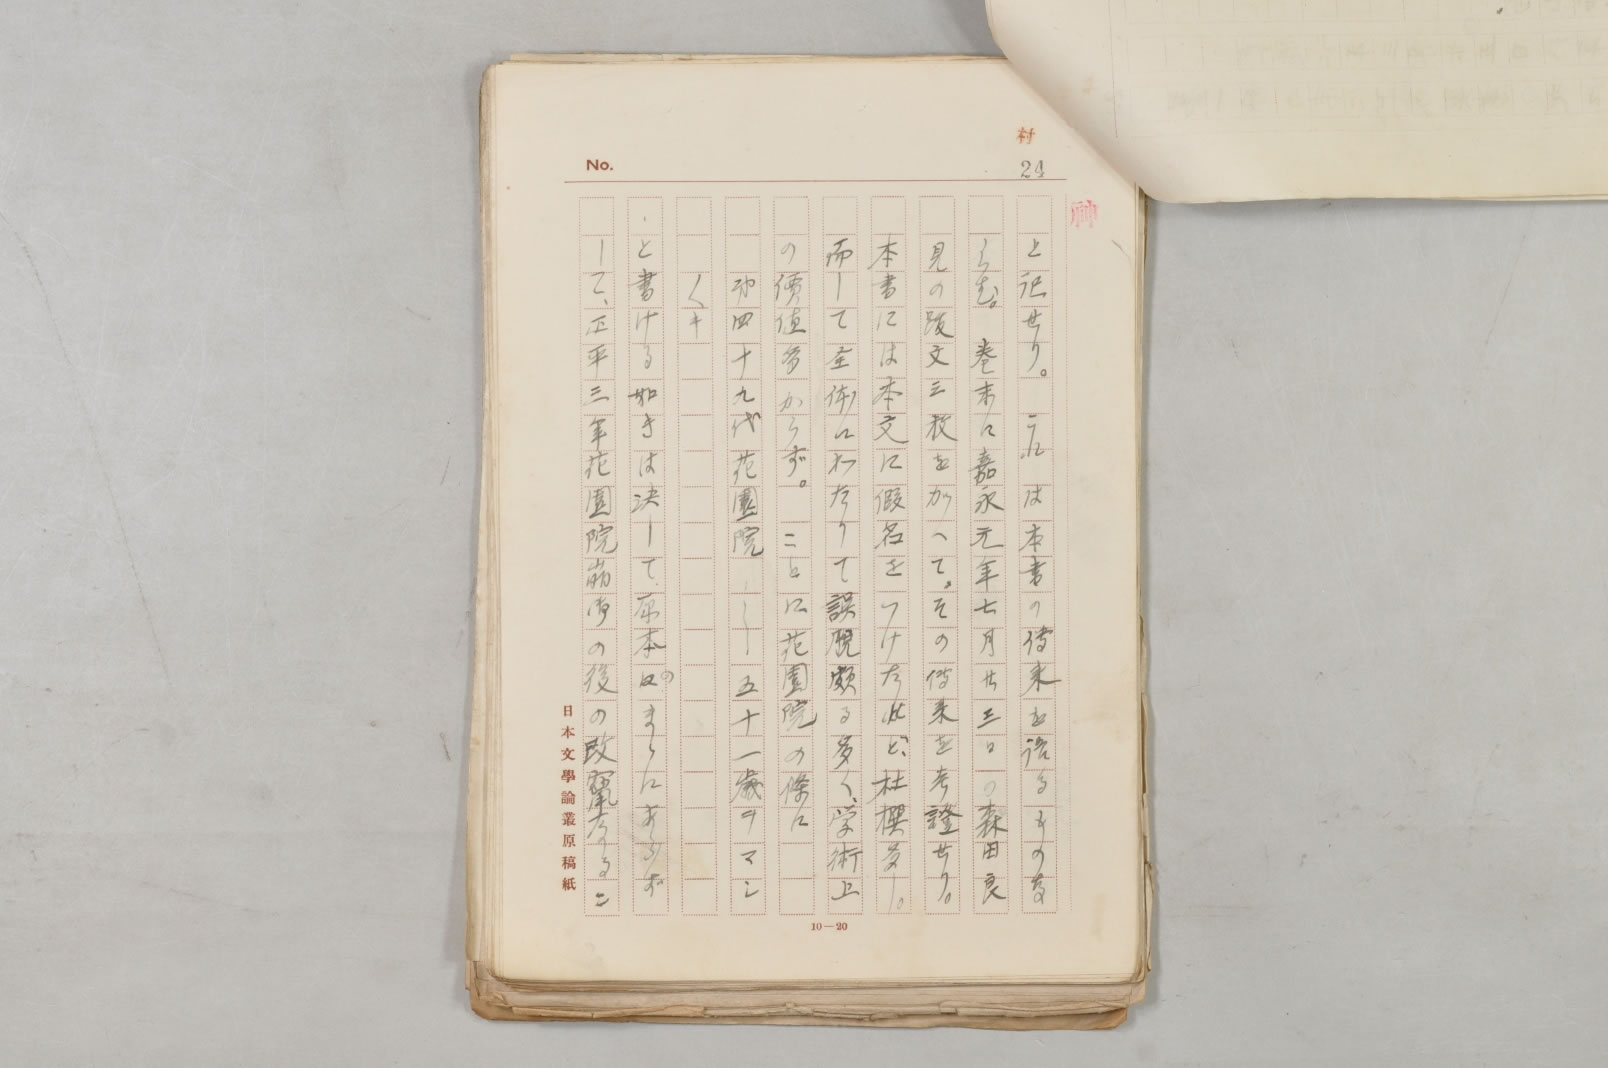 村
No.
24
と記せり。これは本書の傳来を語るものな
らむ。巻末に嘉永元年七月廿三日の森田良
見の跋文三枚をかへて。その傳来を考證せり。
本書には本文に假名をつけたれど、杜撰多し。
而して全体にわたりて誤脱頗る多く、学術上
の價値多からず。ことに花園院の條に
九十四代花園院――五十一歳ヲマシ
〱キ
と書ける如きは決して、原本のまゝにあらず
して、正平三年花園院崩御の後の改竄なるこ
日本文學論叢原稿紙
10—20